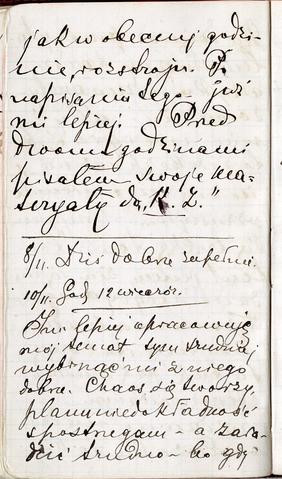 jak w obecnej godzi-
nie, rozstroju. P.
napisaniu tego już
mi lepiej. Przed
dwoma godzinami
pisałem swoje ma-
teryały do „K. Z."
8/11. Dziś dobrze zupełnie.
10/11. God. 12 wieczór.
Im lepiej opracowuję
mój temat tym trudniej
wybrnąć mi z niego
dobrze. Chaos się tworzy,
planu niedokładność
spostrzegam – a zara-
dzić trudno – bo gdy